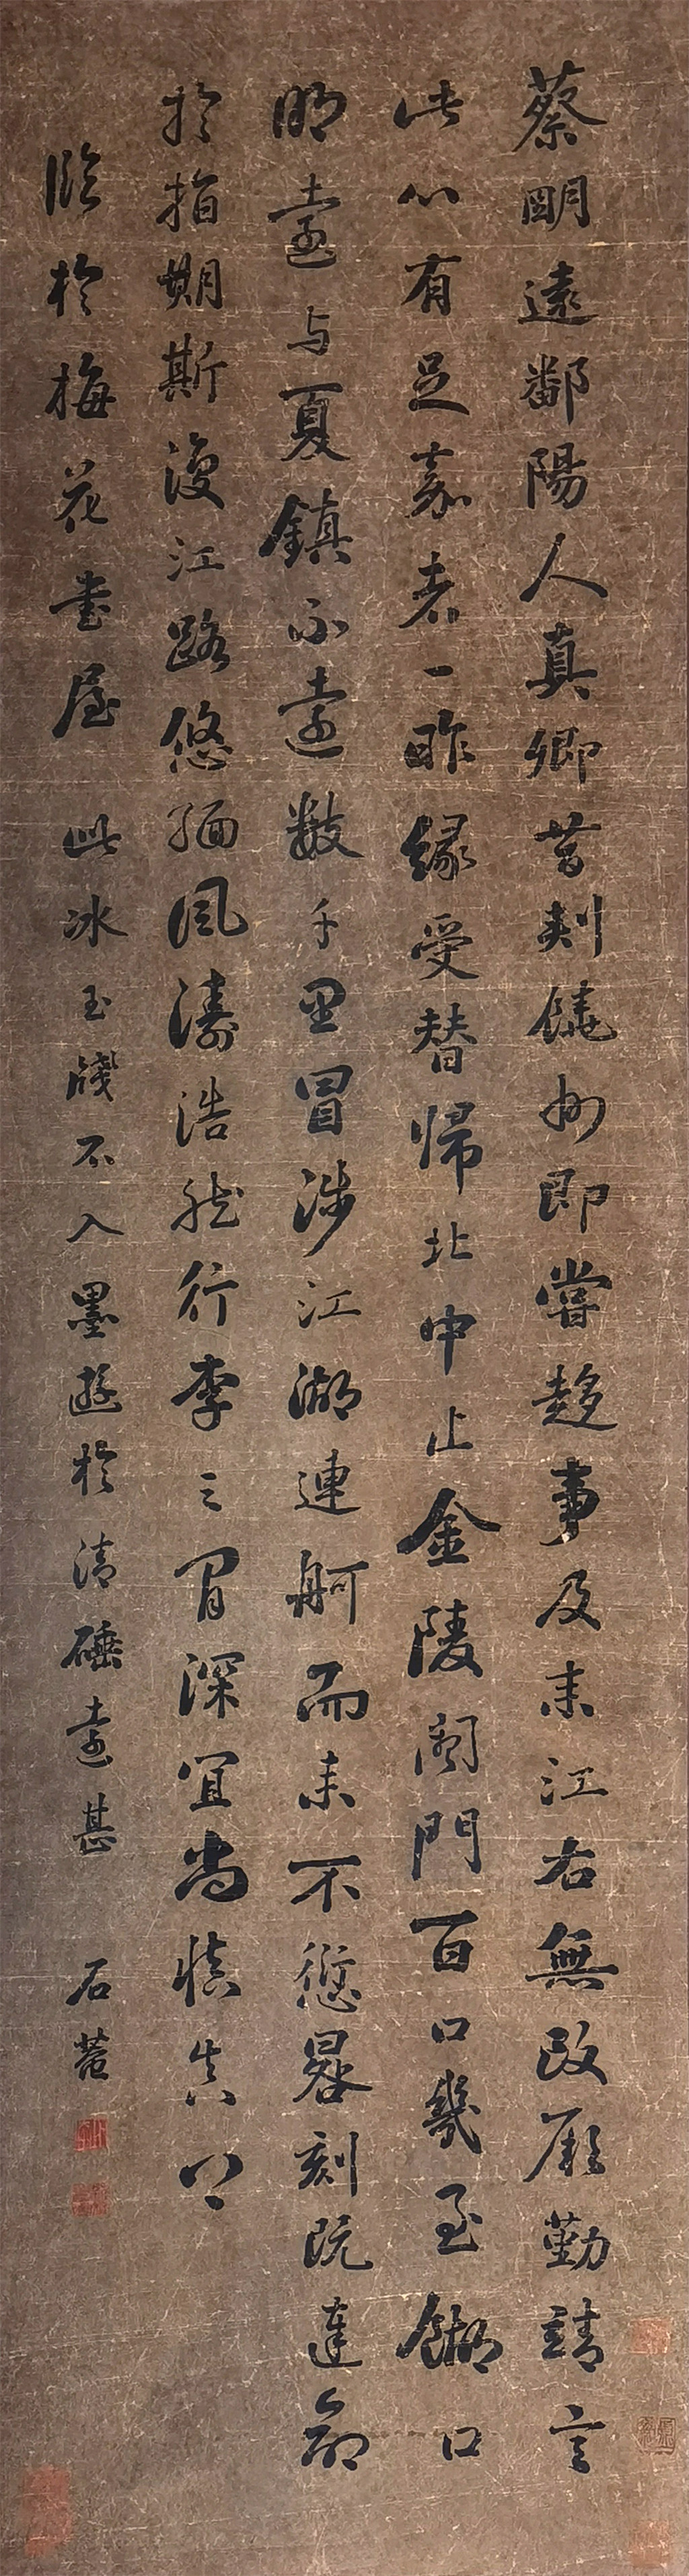 蔡明遠鄱陽人真卿昔刺饒州即嘗趍事及来江右無改厥勤靖言
此心有足嘉者一昨緣受替歸北中止金陵闔門百口幾至餬口
明遠与夏鎮不遠數千里冒涉江湖連舸而来不愆晷刻既達命
於指期斯復江路悠緬風濤浩然行李之間深宜尚慎真卿
臨於梅花書屋 此冰玉牋不入墨遊於清硾遠甚 石菴